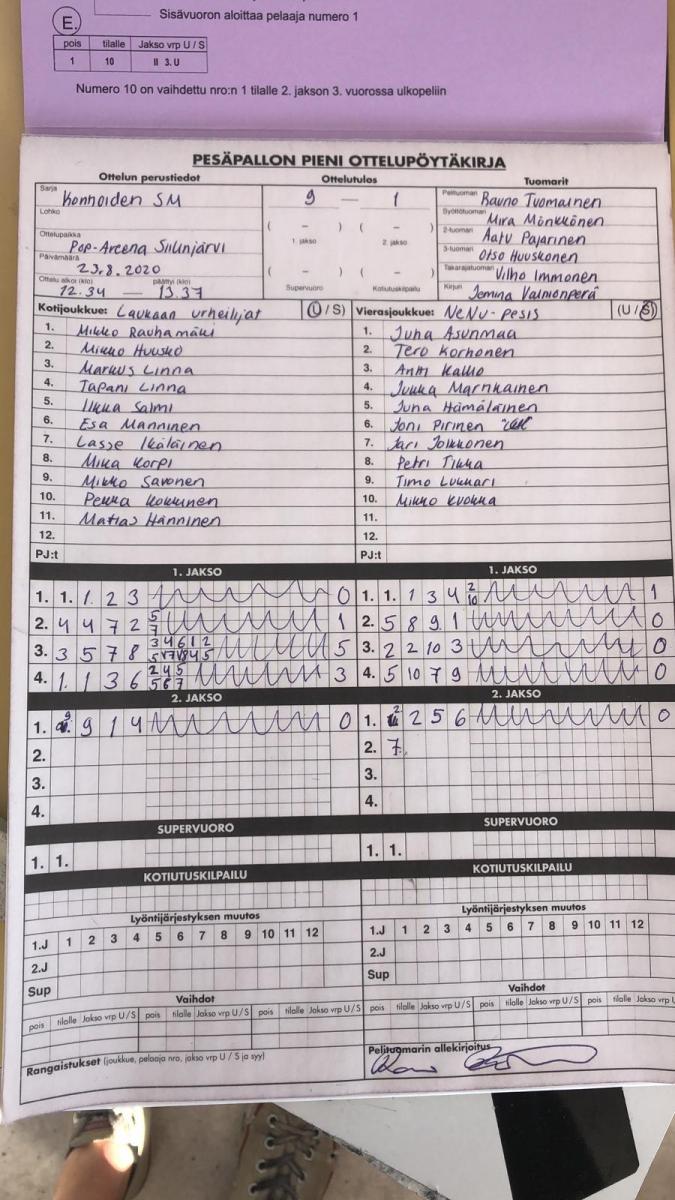 Sisävuoron aloittaa pelaaja numero 1
E.
pois tilalle Jakso vrp U / S
1 10 II 3. U
Numero 10 on vaihdettu nro:n 1 tilalle 2. jakson 3. vuorossa ulkopeliin
PESÄPALLON PIENI OTTELUPÖYTÄKIRJA
Ottelun perustiedot Ottelutulos Tuomarit
Sarja Konnoiden SM 9 — 1 Pelituomari Rauno Tuomainen
Lohko Syöttötuomari Mira Mönkkönen
( – ) ( – ) 2-tuomari Aatu Pajarinen
Ottelupaikka Pop-Areena Siilinjärvi 1. jakso 2. jakso 3-tuomari Otso Huuskonen
Päivämäärä 23.8.2020 ( – ) ( – ) Takarajatuomari Vilho Immonen
Ottelu alkoi (klo) 12.34 päättyi (klo) 13.37 Supervuoro Kotiutuskilpailu Kirjuri Jemina Vallionperä
Kotijoukkue: Laukaan urheilijat (U / S) Vierasjoukkue: NeNu-Pesis (U / S)
1. Mikko Rauhamäki 1. Juha Asunmaa
2. Mikko Huusko 2. Tero Korhonen
3. Markus Linna 3. Antti Kallio
4. Tapani Linna 4. Jukka Marnkainen
5. Ilkka Salmi 5. Juha Hämäläinen
6. Esa Manninen 6. Joni Pirinen
7. Lasse Ikäläinen 7. Jari Jolkkonen
8. Mika Korpi 8. Petri Tikka
9. Mikko Savonen 9. Timo Lukkari
10. Pekka Kokkinen 10. Mikko Kuokka
11. Matias Hänninen 11.
12. 12.
PJ:t PJ:t
1. JAKSO 1. JAKSO
1. 1. 1 2 3 0 1. 1. 1 3 4 2 10 1
2. 4 4 7 2 5 7 1 2. 5 8 9 1 0
3. 3 5 7 8 5 3. 2 2 10 3 0
4. 1. 1 3 6 2 4 5 5 6 7 3 4. 5 10 7 9 0
2. JAKSO 2. JAKSO
1. 9 9 1 4 0 1. 2 2 5 6 0
2. 2. 7
3. 3.
4. 4.
SUPERVUORO SUPERVUORO
1. 1. 1. 1.
KOTIUTUSKILPAILU KOTIUTUSKILPAILU
Lyöntijärjestyksen muutos Lyöntijärjestyksen muutos
1.J 1 2 3 4 5 6 7 8 9 10 11 12 1.J 1 2 3 4 5 6 7 8 9 10 11 12
2.J 2.J
Sup Sup
Vaihdot Vaihdot
pois tilalle Jakso vrp U / S pois tilalle Jakso vrp U / S pois tilalle Jakso vrp U / S pois tilalle Jakso vrp U / S pois tilalle Jakso vrp U / S pois tilalle Jakso vrp U
Rangaistukset (joukkue, pelaaja nro, jakso vrp U / S ja syy) Pelituomarin allekirjoitus